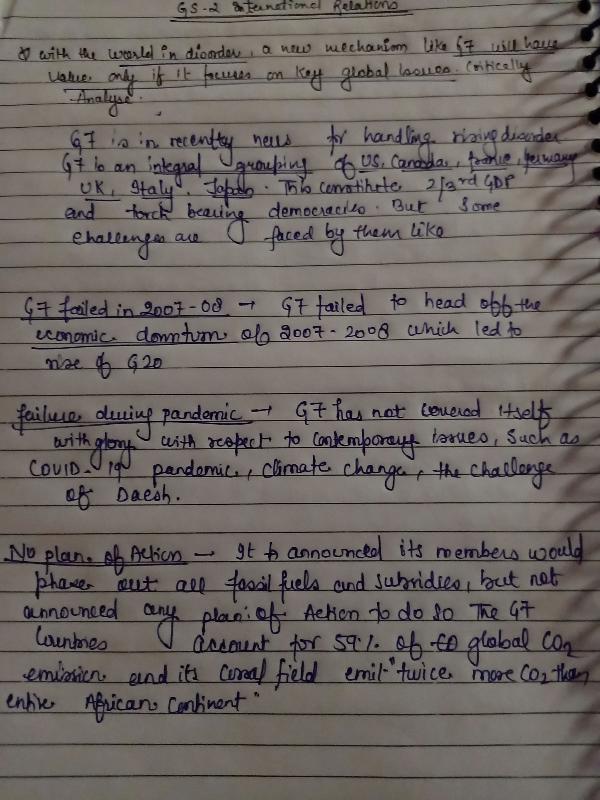 GS-2 International Relations
Q with the world in disorder, a new mechanism like G7 will have
value only if it focuses on key global issues. Critically
Analyse.
G7 is in recently news for handling rising disorder
G7 is an integral grouping of US, Canada, France, Germany
UK, Italy, Japan. This constitute 2/3rd GDP
and torch bearing democracies. But some
challenges are faced by them like
G7 failed in 2007-08 → G7 failed to head off the
economic downturn of 2007-2008 which led to
rise of G20
failure during pandemic → G7 has not covered itself
with glory with respect to contemporary issues, such as
COVID-19 pandemic, climate change, the challenge
of Daesh.
No plan of Action → It announced its members would
phase out all fossil fuels and subsidies, but not
announced any plan of Action to do so The G7
Countries account for 59% of global CO2
emission and its coal field emit "twice more CO2 than
entire African Continent"